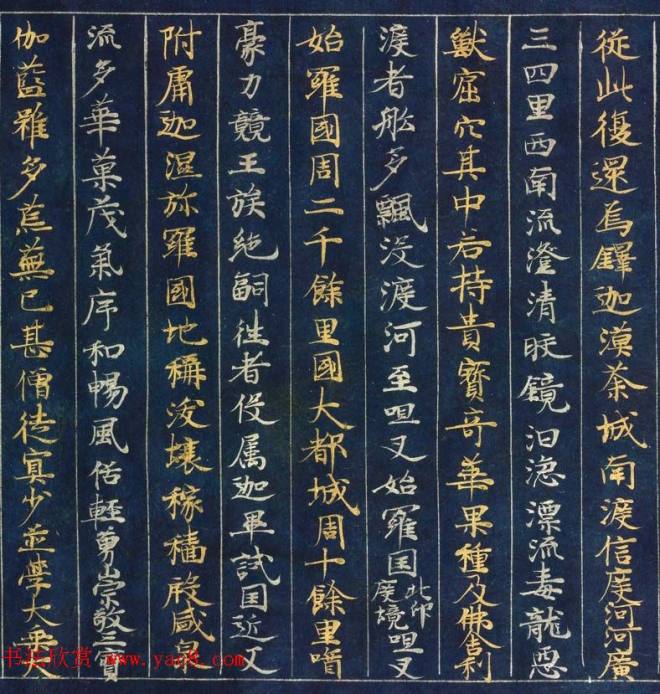 從此復還烏鐸迦漠荼城南渡信度河河廣
三四里西南流澄清皎鏡汩淴漂流毒龍惡
獸窟穴其中若持貴寶奇華果種及佛舍利
渡者船多飄没渡河至呾叉始羅国北印度境呾叉
始羅國周二千餘里國大都城周十餘里酋
豪力競王族絶嗣徃者役属迦畢試国近又
附庸迦濕弥羅國地稱沃壤稼穡殷盛泉
流多華菓茂氣序和暢風俗輕勇崇敬三寶
伽藍雖多荒蕪已甚僧徒寡少並學大乘
书法欣赏 www.yac8.com